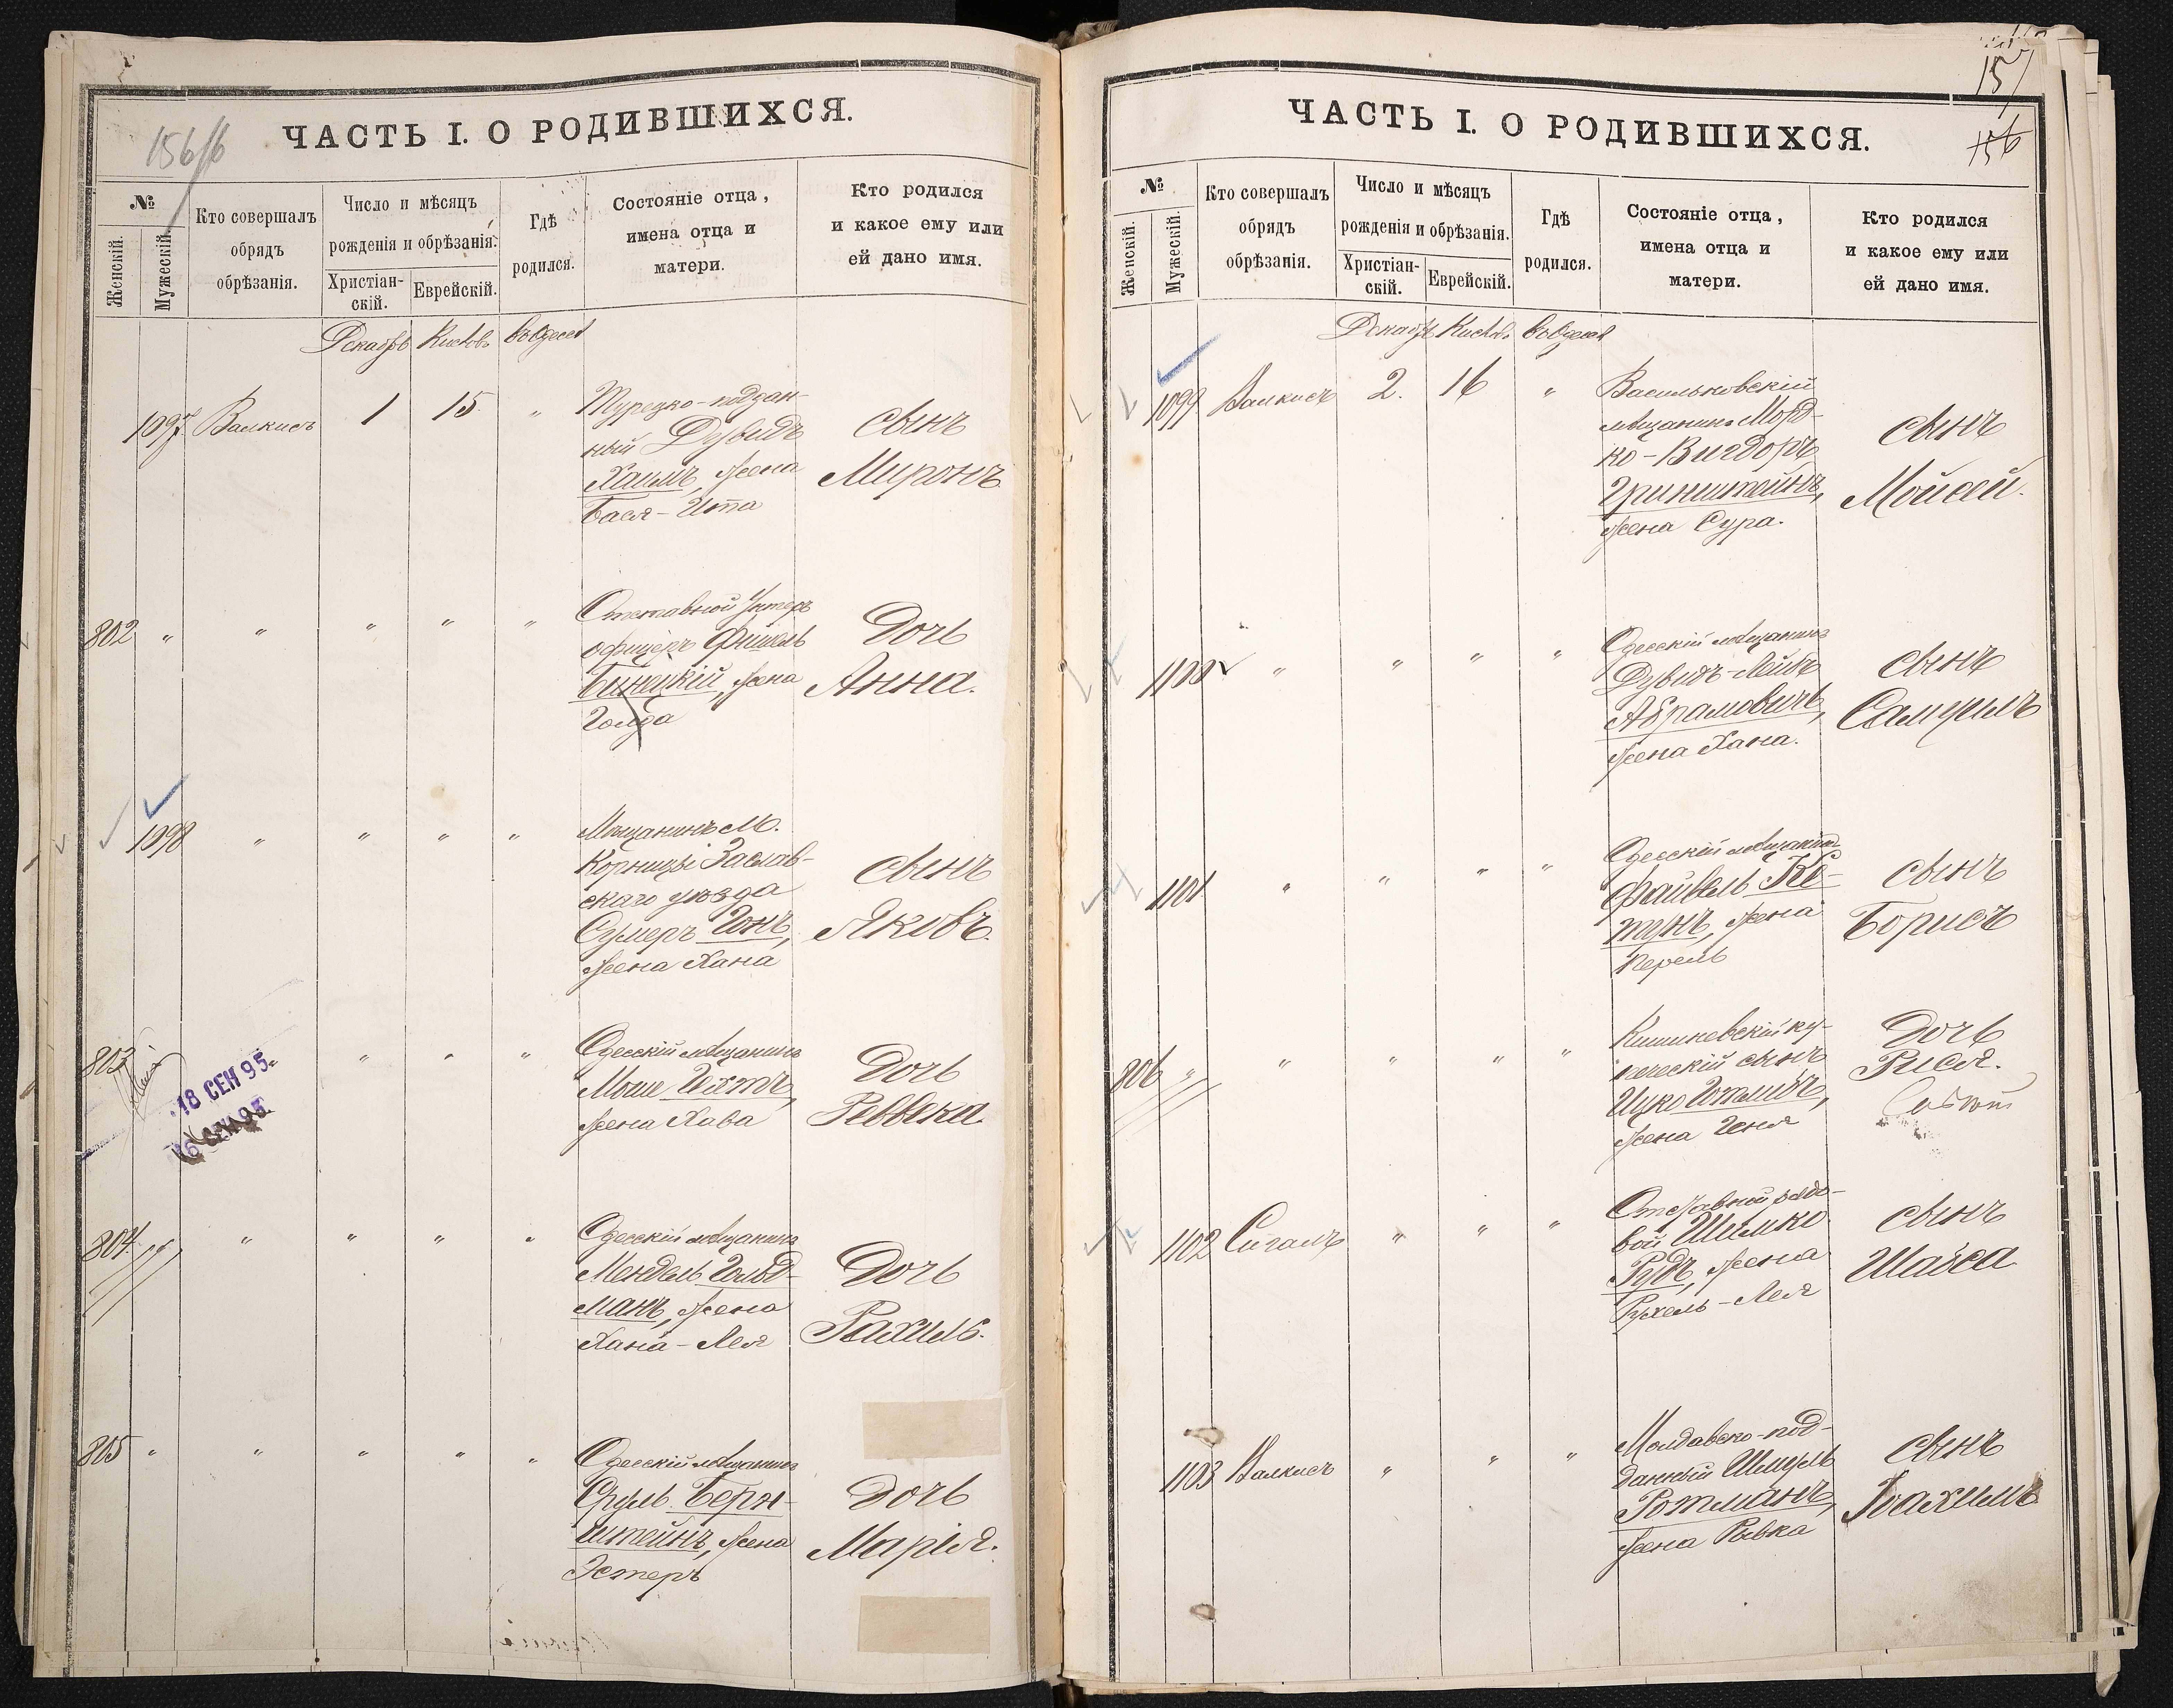 156/б
ЧАСТЬ I. О РОДИВШИХСЯ.
№
Женскій.
Мужескій.
Кто совершалъ
обрядъ
обрѣзанія.
Число и мѣсяцъ
рожденія и обрѣзанія.
Христіан-
скій.
Еврейскій.
Гдѣ
родился.
Состояніе отца,
имена отца и
матери.
Кто родился
и какое ему или
ей дано имя.
Декабрь Кислов. въ Одессѣ
1097 Валкисъ 1 15 " Турецко-поддан-
ный Дувидъ
Хаимъ, жена
Бася-Ита
сынъ
Миронъ
802 " " " " " Отставной Унтеръ
офицеръ Фишель
Бинецкій, жена
Голда
Дочь
Анна.
1098 " " " " Мѣщанинъ м.
Корницы Заслав-
скаго уѣзда
Сумеръ Гонъ,
жена Хана
сынъ
Яковъ.
803 " " " Одесскій мѣщанинъ
Моше Гехтъ,
жена Хава
Дочь
Реввека.
18 СЕН 95.
16 СЕН 95.
804 " " " " " Одесскій мѣщанинъ
Мендель Гольд-
манъ, жена
Хана-Лея
Дочь
Рахиль.
805 " " " " " Одесскій мѣщанинъ
Сруль Берн-
штейнъ, жена
Эстеръ
Дочь
Марія.
157
156
ЧАСТЬ I. О РОДИВШИХСЯ.
№
Женскій.
Мужескій.
Кто совершалъ
обрядъ
обрѣзанія.
Число и мѣсяцъ
рожденія и обрѣзанія.
Христіан-
скій.
Еврейскій.
Гдѣ
родился.
Состояніе отца,
имена отца и
матери.
Кто родился
и какое ему или
ей дано имя.
Декабрь Кислов. въ Одессѣ
1099 Валкисъ 2. 16 " Васильковскій
мѣщанинъ Морд-
ко-Вигдоръ
Гринштейнъ,
жена Сура.
сынъ
Мойсей.
1100 " " " " Одесскій мѣщанинъ
Дувидъ-Лейбъ
Абрамовичъ,
жена Хана.
сынъ
Самуилъ
1101 " " " " Одесскій мѣщанинъ
Файвель Ко-
тунъ, жена
Перель
сынъ
Борисъ
806 " " " " " Кишиневскій ку-
печескій сынъ
Ицко Готлибъ,
жена Геня
Дочь
Рися.
1102 Сигалъ " " " Отставной рядо-
вой Шимко
Рудъ, жена
Рухель-Лея
сынъ
Шабса
1103 Валкисъ " " " Молдавско-под-
данный Шмуль
Ротманъ,
жена Ривка
сынъ
Іоахимъ